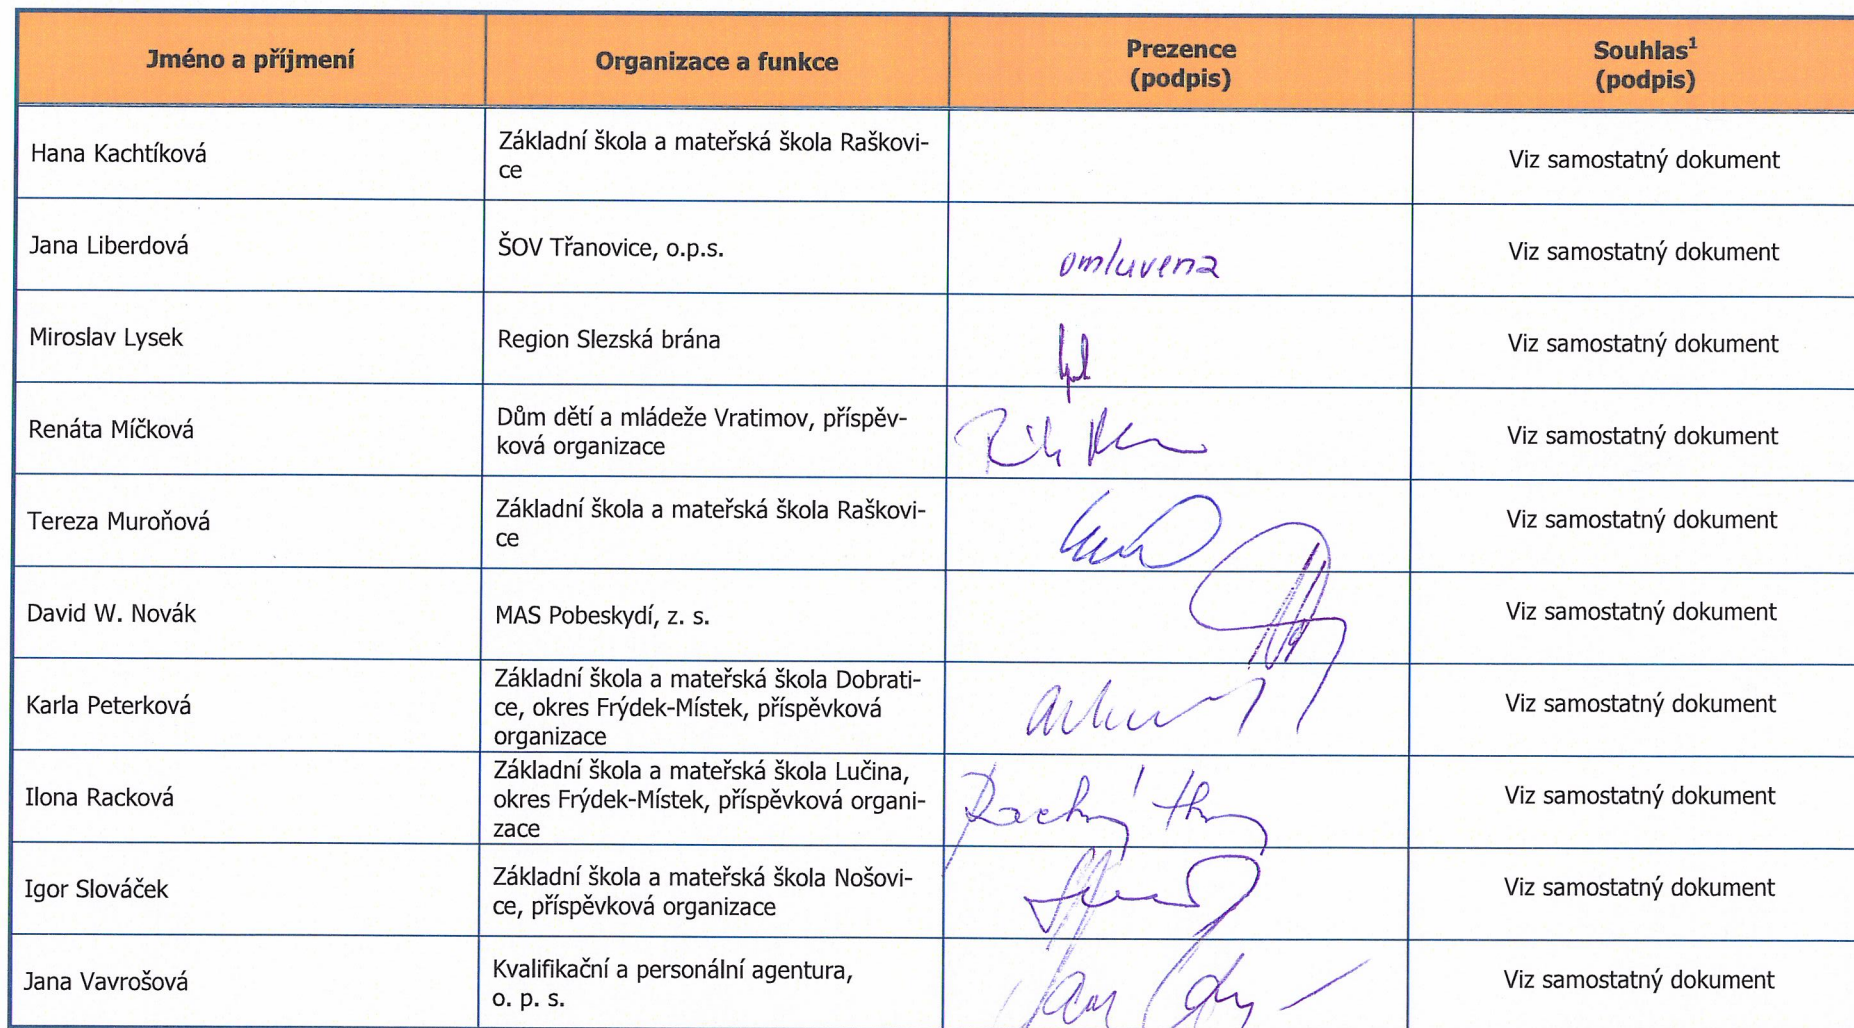 Jméno a příjmení
Organizace a funkce
Prezence
(podpis)
Souhlas¹
(podpis)
Hana Kachtíková
Základní škola a mateřská škola Raškovi-
ce
Viz samostatný dokument
Jana Liberdová
ŠOV Třanovice, o.p.s.
omluvena
Viz samostatný dokument
Miroslav Lysek
Region Slezská brána
Viz samostatný dokument
Renáta Míčková
Dům dětí a mládeže Vratimov, příspěv-
ková organizace
Viz samostatný dokument
Tereza Muroňová
Základní škola a mateřská škola Raškovi-
ce
Viz samostatný dokument
David W. Novák
MAS Pobeskydí, z. s.
Viz samostatný dokument
Karla Peterková
Základní škola a mateřská škola Dobrati-
ce, okres Frýdek-Místek, příspěvková
organizace
Viz samostatný dokument
Ilona Racková
Základní škola a mateřská škola Lučina,
okres Frýdek-Místek, příspěvková organi-
zace
Viz samostatný dokument
Igor Slováček
Základní škola a mateřská škola Nošovi-
ce, příspěvková organizace
Viz samostatný dokument
Jana Vavrošová
Kvalifikační a personální agentura,
o. p. s.
Viz samostatný dokument